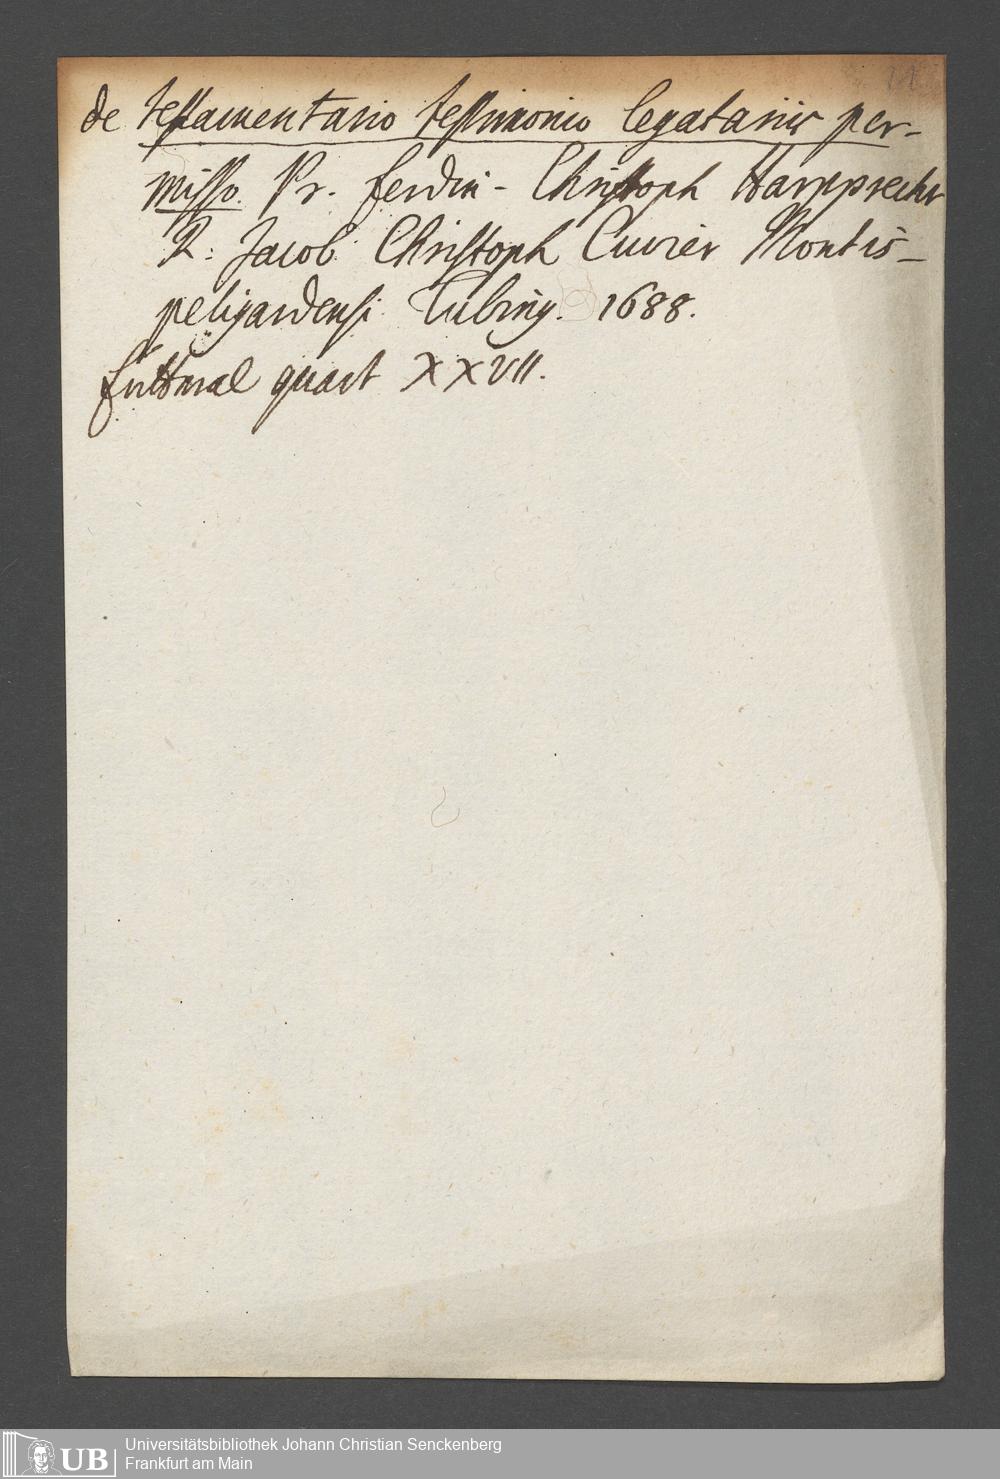 de testamentario testimonio legatariis per-
misso. Pr. Ferdin- Christoph Harpprecht
R: Jacob: Christoph Cuvier Montis-
peligardensi. Tubing. 1688.
quart XXVII.
Universitätsbibliothek Johann Christian Senckenberg
Frankfurt am Main
UB